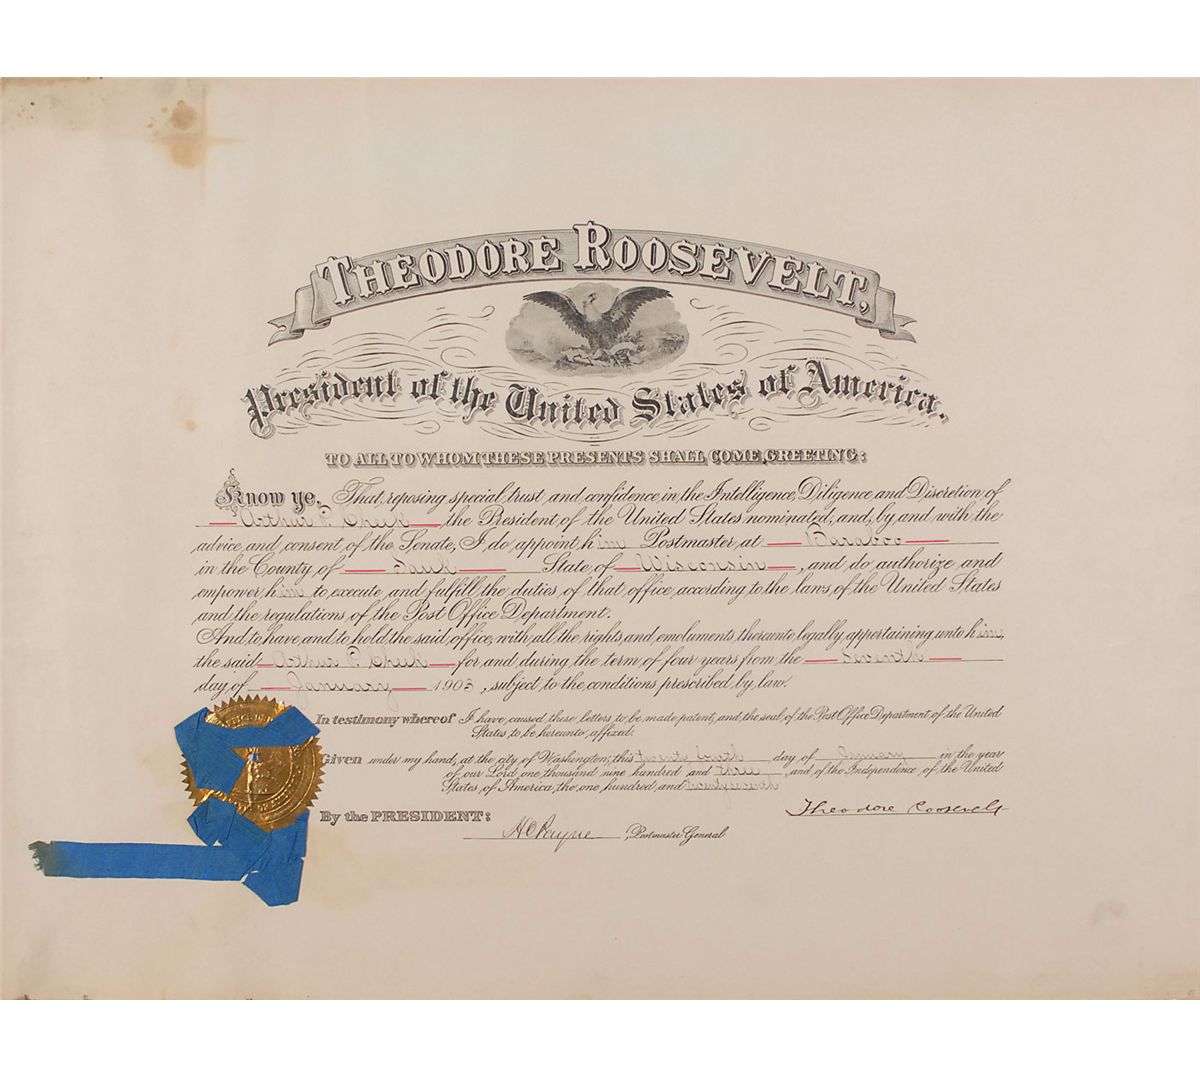 THEODORE ROOSEVELT,
President of the United States of America.
TO ALL TO WHOM THESE PRESENTS SHALL COME, GREETING:
Know ye, That, reposing special trust and confidence in the Intelligence, Diligence and Discretion of
Arthur P. Cheek, the President of the United States nominated, and, by and with the
advice and consent of the Senate, I do appoint him Postmaster at Baraboo
in the County of Sauk State of Wisconsin, and do authorize and
empower him to execute and fulfill the duties of that office, according to the laws of the United States
and the regulations of the Post Office Department.
And to have and to hold the said office, with all the rights and emoluments thereunto legally appertaining unto him,
the said Arthur P. Cheek for and during the term of four years from the seventh
day of January 1903, subject to the conditions prescribed by law.
In testimony whereof I have caused these letters to be made patent, and the seal of the Post Office Department of the United
States to be hereunto affixed.
Given under my hand, at the city of Washington, this day of January in the year
of our Lord one thousand nine hundred and three, and of the Independence of the United
States of America, the one hundred and twenty seventh
Theodore Roosevelt
By the PRESIDENT:
H C Payne, Postmaster General